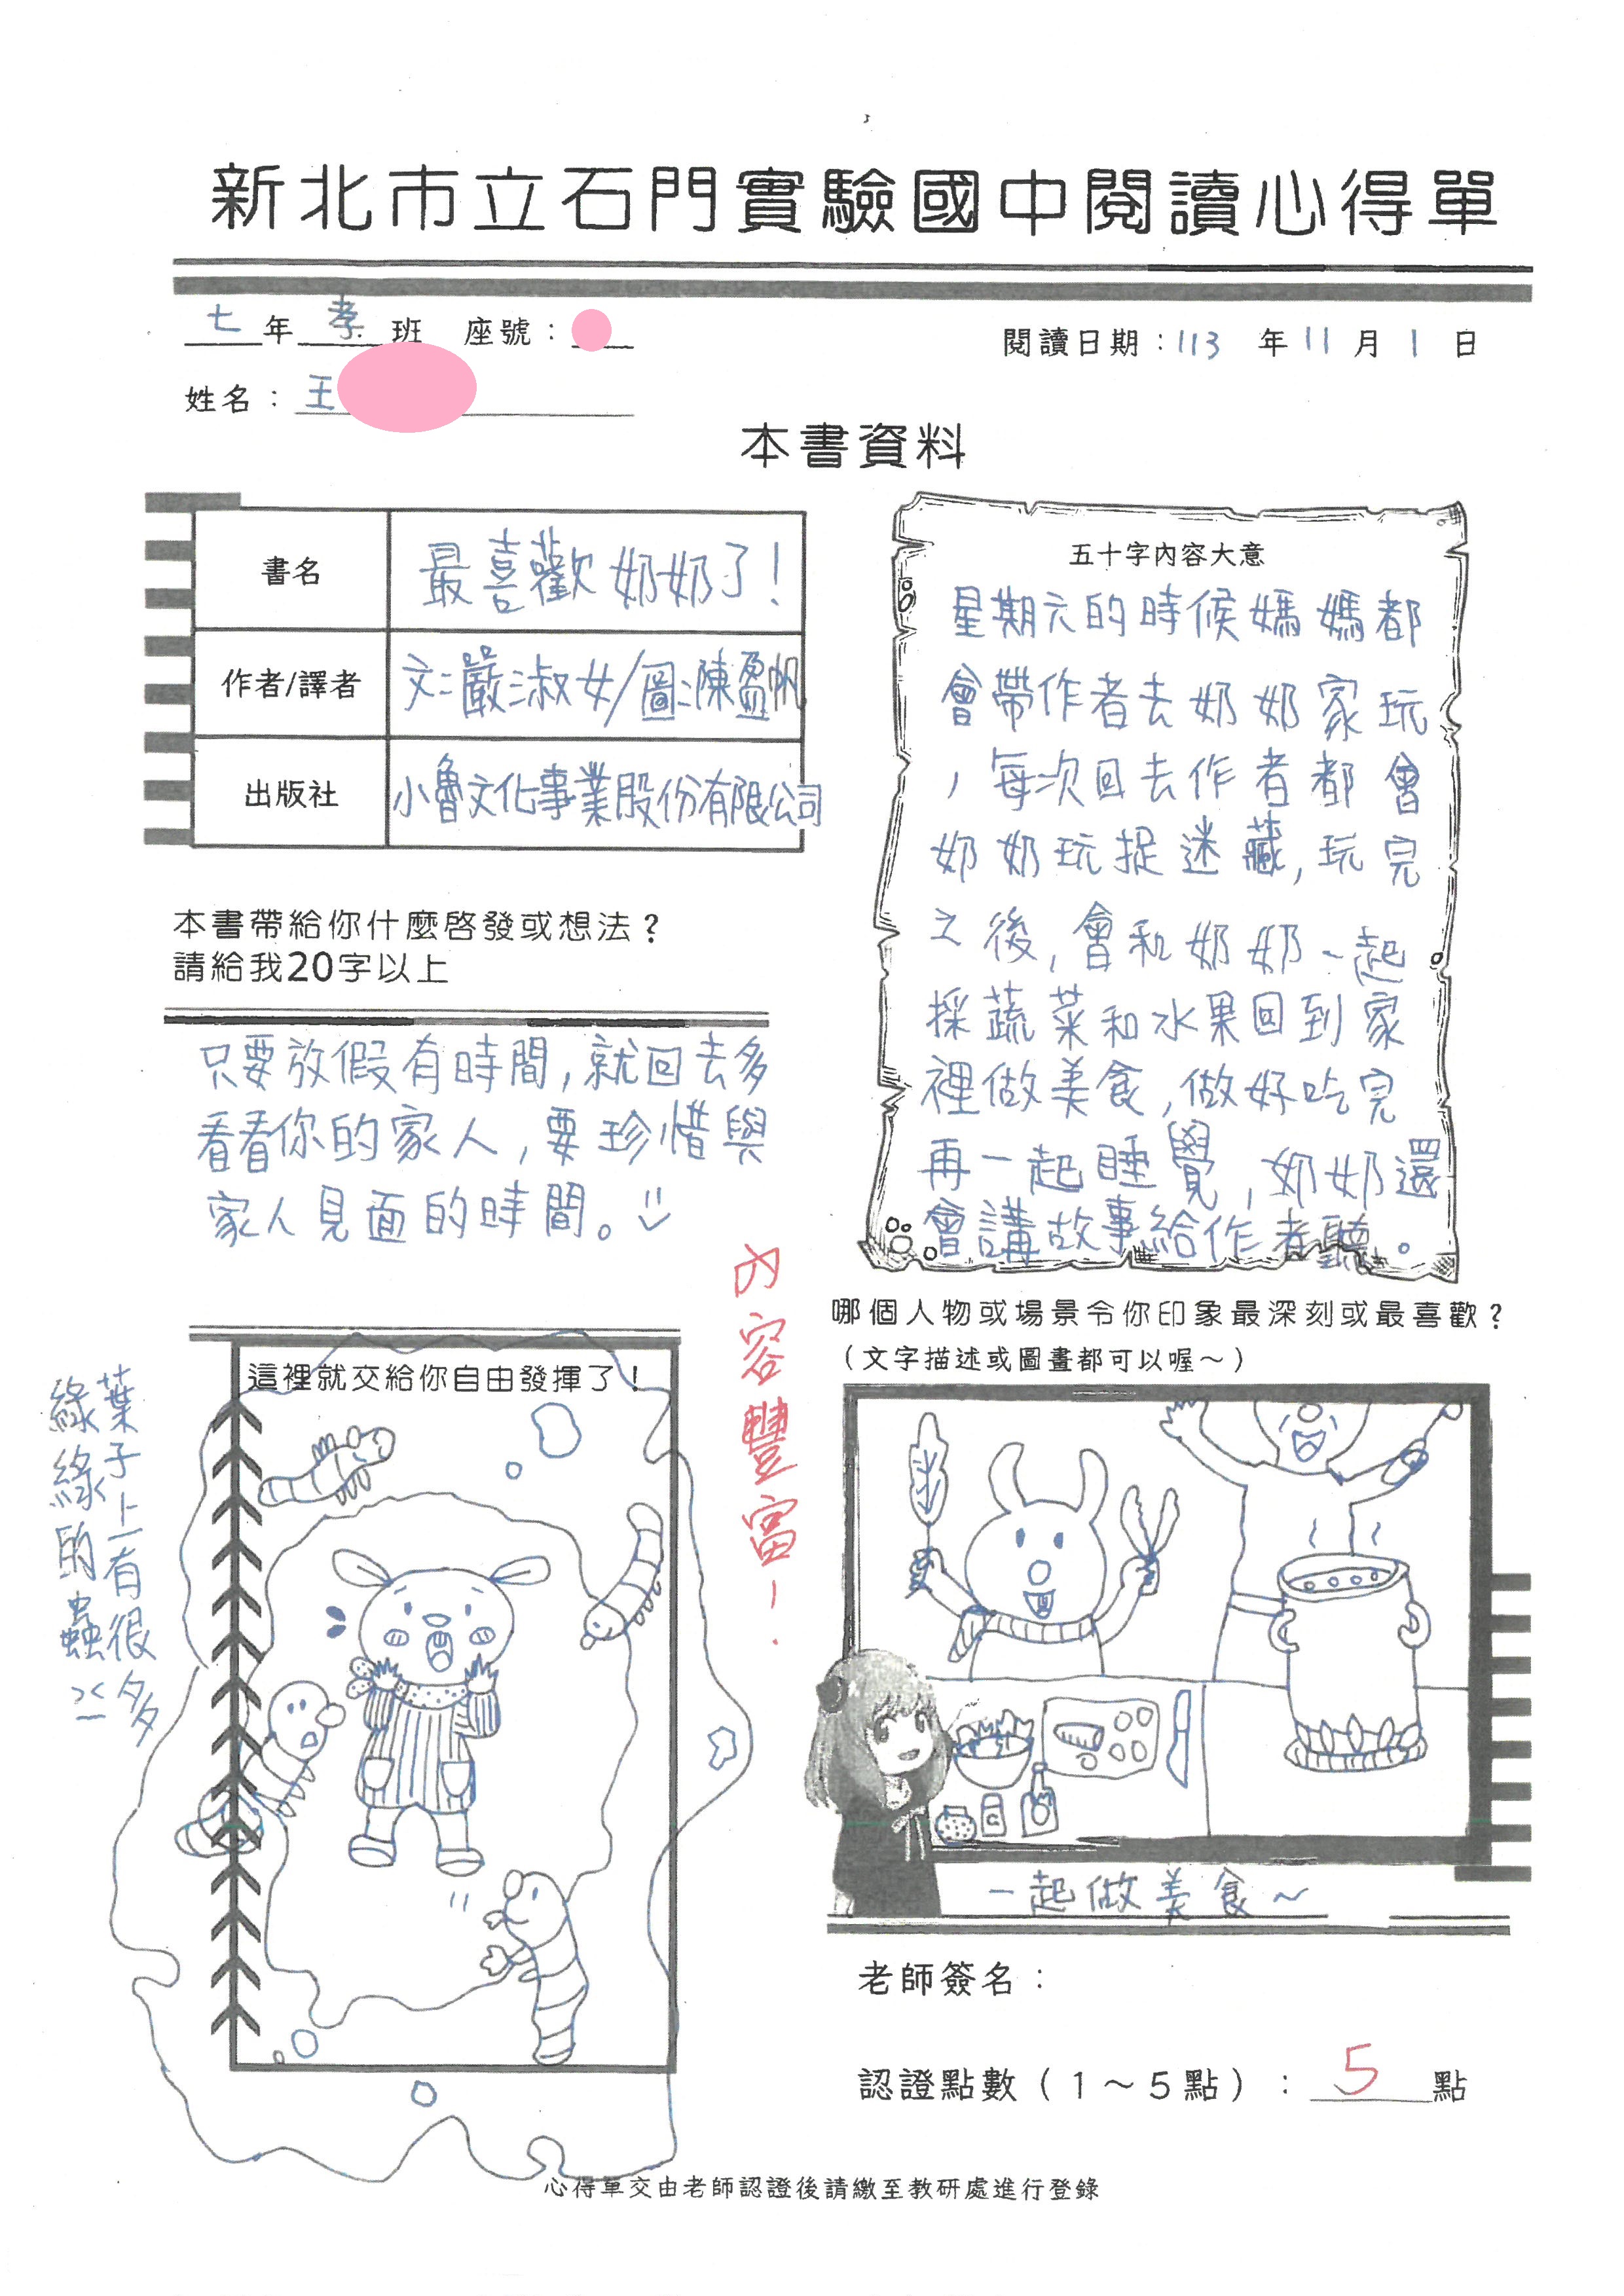 新北市立石門實驗國中閱讀心得單
七年孝班 座號：
閱讀日期：113 年 11 月 1 日
姓名：王
本書資料
書名 最喜歡奶奶了！
作者/譯者 文：嚴淑女/圖：陳盈帆
出版社 小魯文化事業股份有限公司
本書帶給你什麼啓發或想法？
請給我20字以上
只要放假有時間，就回去多
看看你的家人，要珍惜與
家人見面的時間。
五十字內容大意
星期六的時候媽媽都
會帶作者去奶奶家玩
，每次回去作者都會
奶奶玩捉迷藏，玩完
之後，會和奶奶一起
採蔬菜和水果回到家
裡做美食，做好吃完
再一起睡覺，奶奶還
會講故事給作者聽。
內容豐富！
這裡就交給你自由發揮了！
葉子上有很多
綠綠的蟲
哪個人物或場景令你印象最深刻或最喜歡？
（文字描述或圖畫都可以喔～）
一起做美食～
老師簽名：
認證點數（1～5點）：5點
心得單交由老師認證後請繳至教研處進行登錄